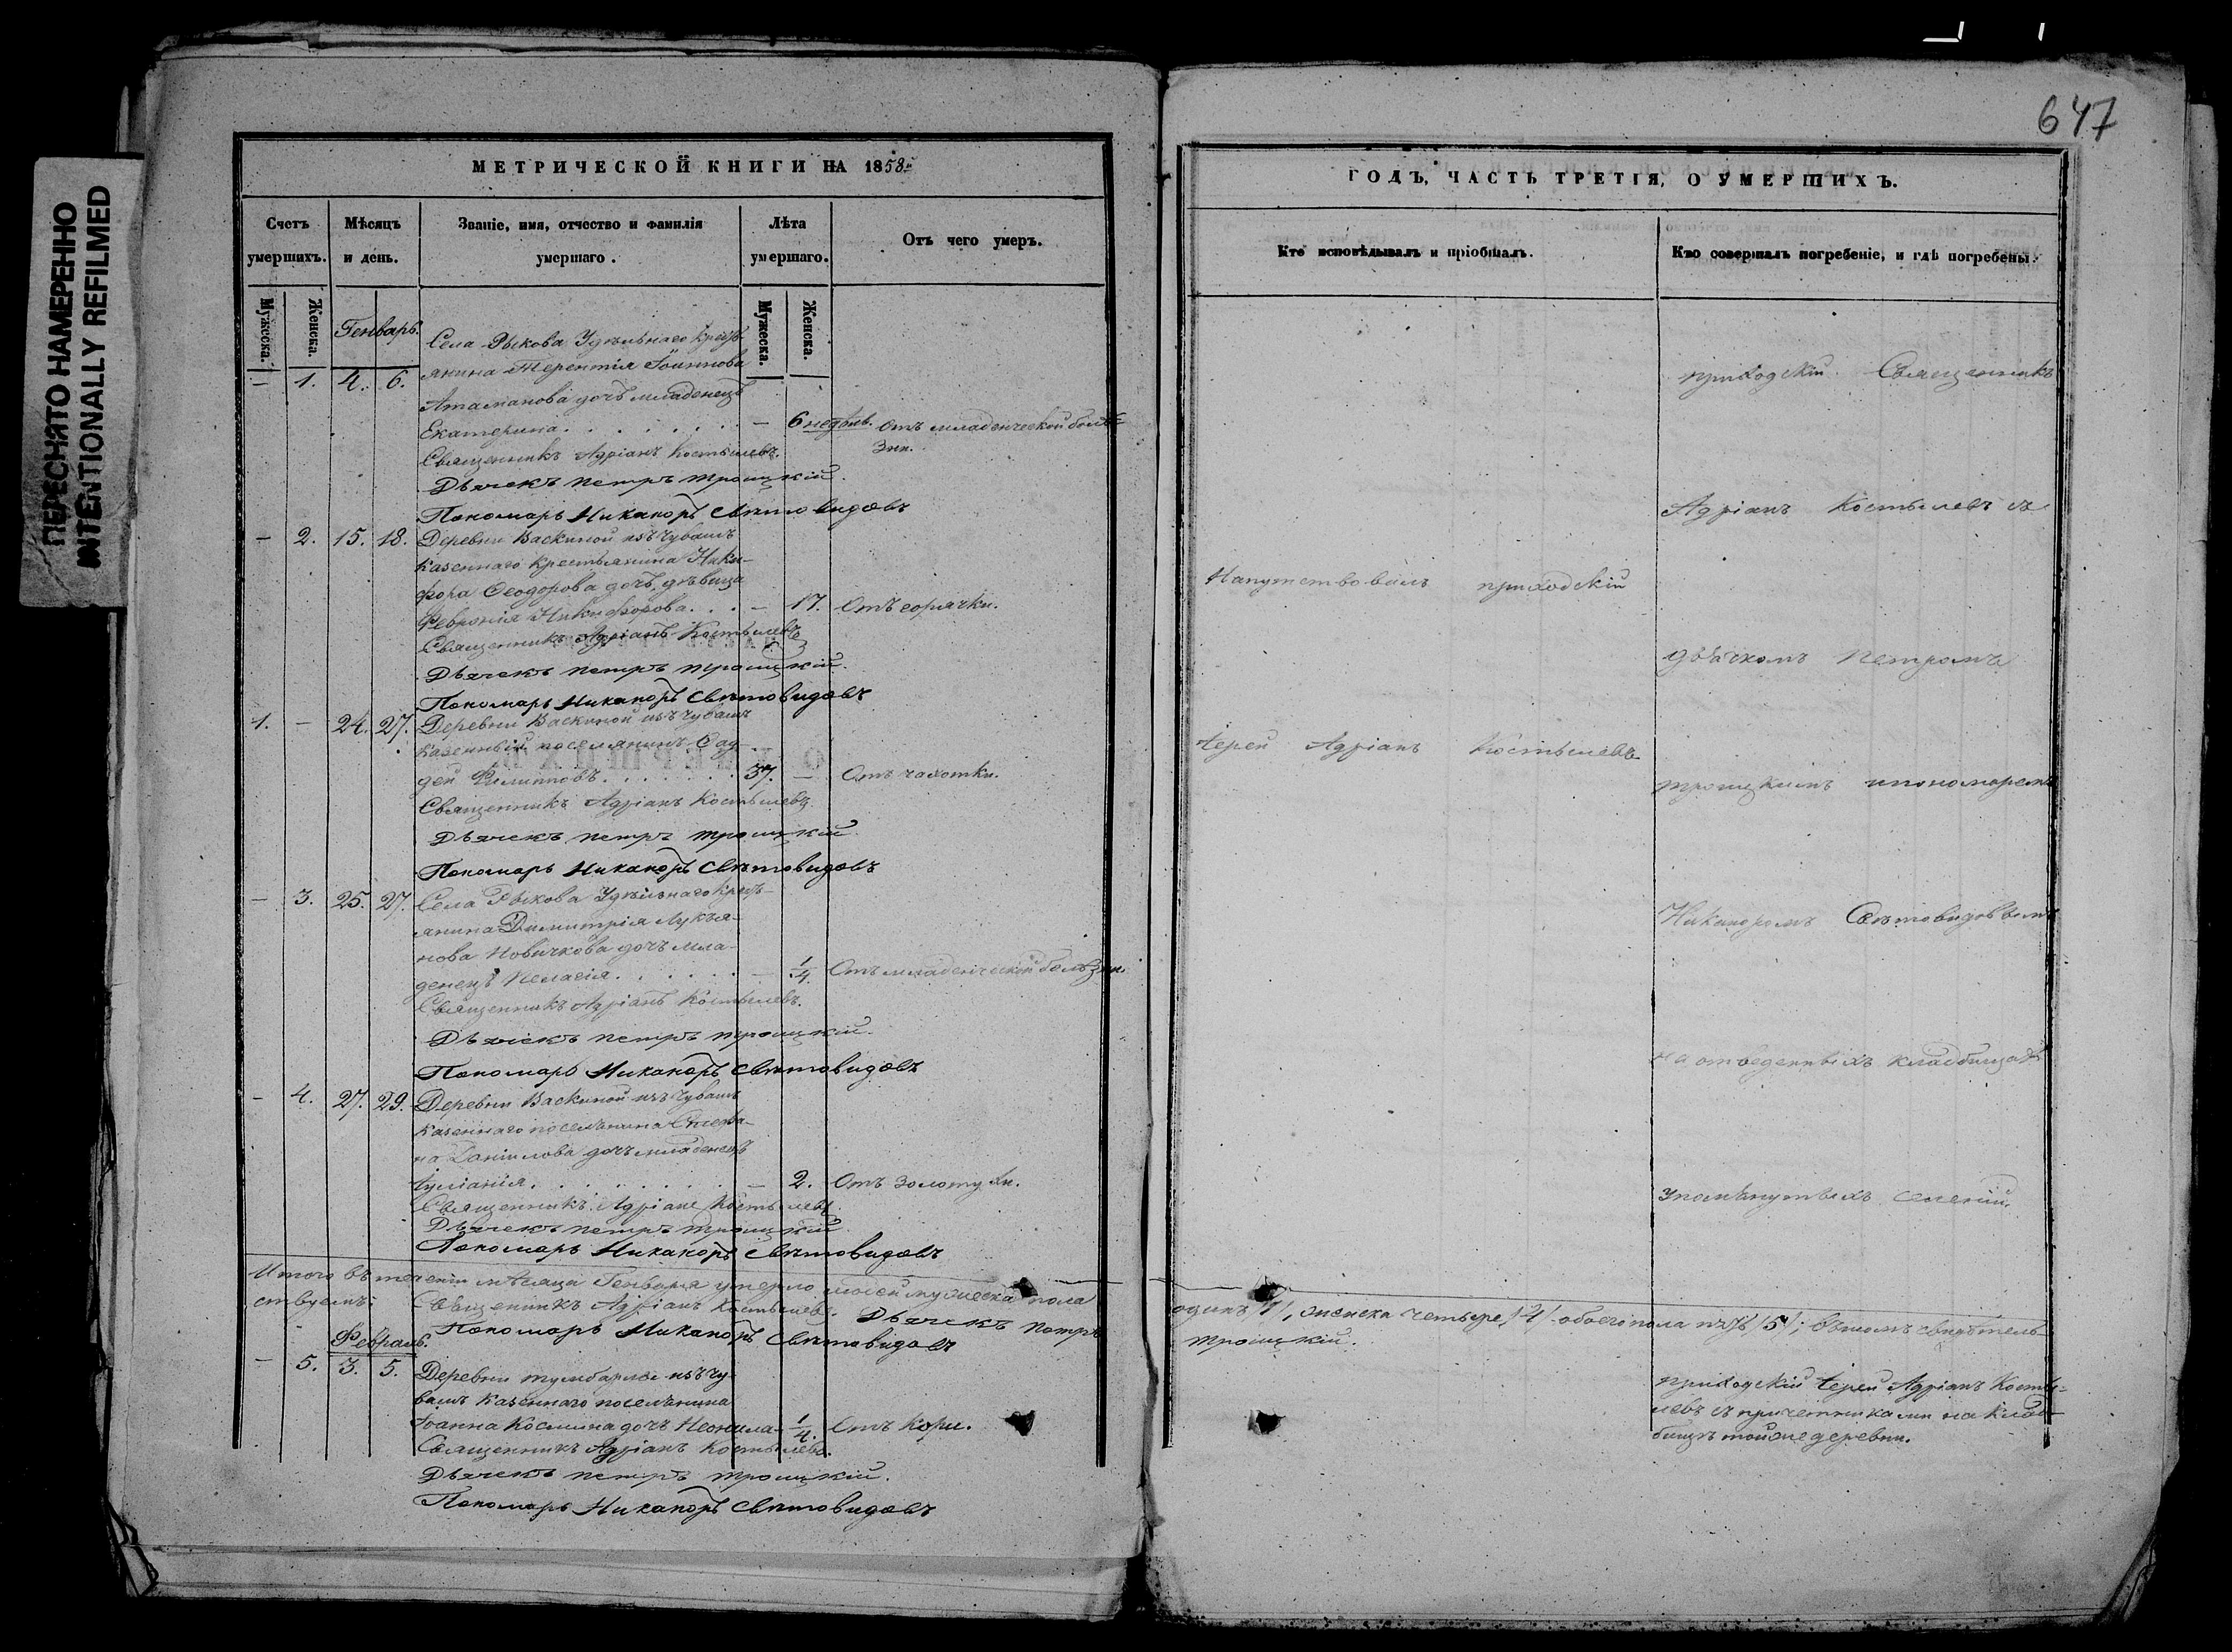 ПЕРЕСНЯТО НАМЕРЕННО
INTENTIONALLY REFILMED
647
МЕТРИЧЕСКОЙ КНИГИ НА 1858й
Счетъ умершихъ.
Мѣсяцъ и день.
Званіе, имя, отчество и фамилія умершаго.
Лѣта умершаго.
Отъ чего умеръ.
Мужеска. Женска.
Мужеска. Женска.
Генварь.
Села Рыкова Удѣльнаго крестъ-
– 1. 4. 6. янина Терентія Іоаннова
Атаманова дочь младенецъ
Екатерина. – 6 недѣль. Отъ младенческой болѣ-
зни.
Священникъ Адріанъ Костылевъ.
Дьячекъ Петръ Троицкій.
Пономарь Никаноръ Свѣтовидовъ
– 2. 15. 18. Деревни Васкиной изъ чувашъ
казеннаго крестьянина Ники-
фора Ѳеодорова дочь, дѣвица
Февронія Никифорова. – 17. Отъ горячки.
Священникъ Адріанъ Костылевъ
Дьячекъ Петръ Троицкій.
Пономарь Никаноръ Свѣтовидовъ
1. – 24. 27. Деревни Васкиной изъ чувашъ
казенный поселянинъ Ѳад-
дей Филипповъ. 37. – Отъ чахотки.
Священникъ Адріанъ Костылевъ
Дьячекъ Петръ Троицкій
Пономарь Никаноръ Свѣтовидовъ
– 3. 25. 27. Села Рыкова Удѣльнаго крестъ-
янина Димитрія Лукья-
нова Новичкова дочь мла-
денецъ Пелагія. – 1/4. Отъ младенческой болѣзни.
Священникъ Адріанъ Костылевъ.
Дьячекъ Петръ Троицкій.
Пономарь Никаноръ Свѣтовидовъ
– 4. 27. 29. Деревни Васкиной изъ чувашъ
казеннаго поселянина Степа-
на Даніилова дочь младенецъ
Іуліанія. – 2. Отъ золотухи.
Священникъ Адріанъ Костылевъ.
Дьячекъ Петръ Троицкій
Пономарь Никаноръ Свѣтовидовъ
Итого въ теченіи мѣсяца Генваря умерло людей мужеска пола
ствуемъ: Священникъ Адріанъ Костылевъ. Дьячекъ Петръ
Пономарь Никаноръ Свѣтовидовъ
Февраль.
– 5. 3. 5. Деревни Тумбарлы изъ чу-
вашъ казеннаго поселянина
Іоанна Космина дочь Неонила – 1/4. Отъ кори.
Священникъ Адріанъ Костылевъ.
Дьячекъ Петръ Троицкій.
Пономарь Никаноръ Свѣтовидовъ
ГОДЪ, ЧАСТЬ ТРЕТІЯ, О УМЕРШИХЪ.
Кто исповѣдывалъ и пріобщалъ.
Кто совершалъ погребеніе, и гдѣ погребены.
Напутствовалъ приходскій
Іерей Адріанъ Костылевъ
приходскій Священникъ
Адріанъ Костылевъ съ
дьячкомъ Петромъ
Троицкимъ и пономаремъ
Никаноромъ Свѣтовидовымъ
на отведенныхъ кладбищахъ
упомянутыхъ селеній.
одинъ /1/, женска четыре /4/ обоего пола пять /5/; въ томъ свидѣтель-
Троицкій.
приходскій Іерей Адріанъ Косты-
левъ съ причетниками на клад-
бищѣ той же деревни.